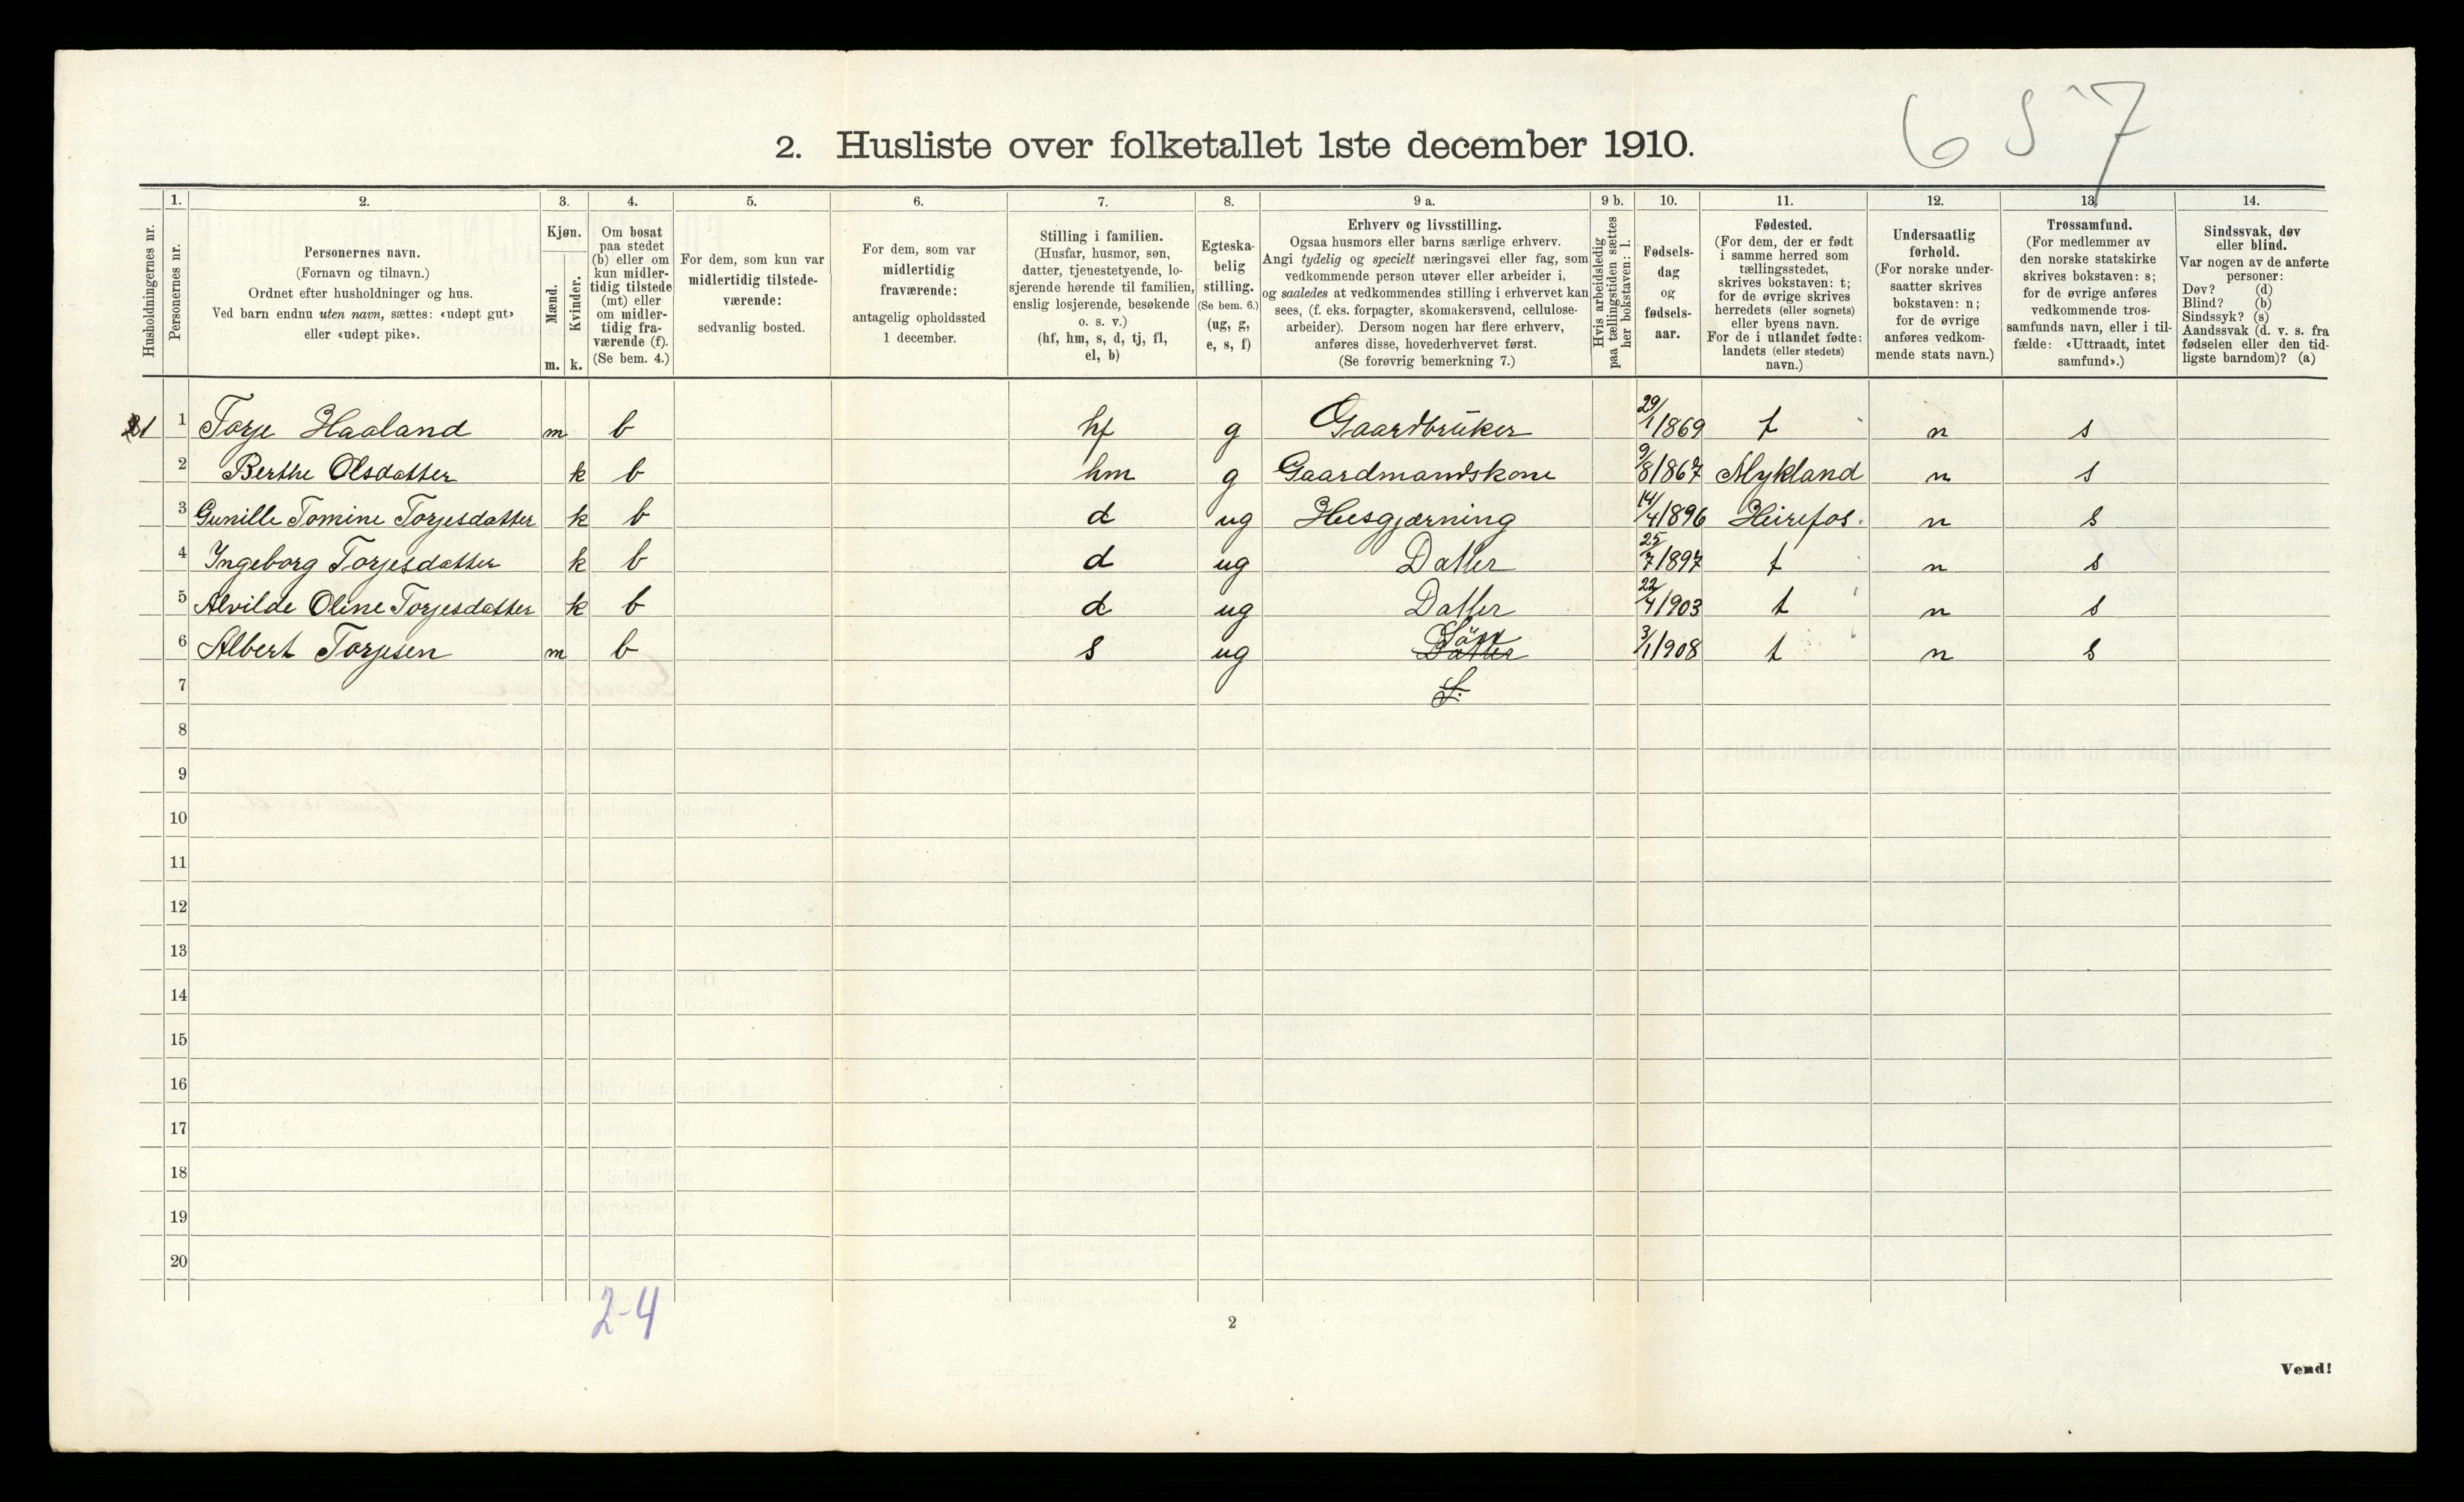 657
2. Husliste over folketallet 1ste december 1910.
Husholdningernes nr.
1.
Personernes nr.
2.
Personernes navn.
(Fornavn og tilnavn.)
Ordnet efter husholdninger og hus.
Ved barn endnu uten navn, sættes: «udøpt gut»
eller «udøpt pike».
3.
Kjøn.
Mænd.
Kvinder.
m. k.
4.
Om bosat
paa stedet
(b) eller om
kun midler-
tidig tilstede
(mt) eller
om midler-
tidig fra-
værende (f).
(Se bem. 4.)
5.
For dem, som kun var
midlertidig tilstede-
værende:
sedvanlig bosted.
6.
For dem, som var
midlertidig
fraværende:
antagelig opholdssted
1 december.
7.
Stilling i familien.
(Husfar, husmor, søn,
datter, tjenestetyende, lo-
sjerende hørende til familien,
enslig losjerende, besøkende
o. s. v.)
(hf, hm, s, d, tj, fl,
el, b)
8.
Egteska-
belig
stilling.
(Se bem. 6.)
(ug, g,
e, s, f)
9 a.
Erhverv og livsstilling.
Ogsaa husmors eller barns særlige erhverv.
Angi tydelig og specielt næringsvei eller fag, som
vedkommende person utøver eller arbeider i,
og saaledes at vedkommendes stilling i erhvervet kan
sees, (f. eks. forpagter, skomakersvend, cellulose-
arbeider). Dersom nogen har flere erhverv,
anføres disse, hovederhvervet først.
(Se forøvrig bemerkning 7.)
9 b.
Hvis arbeidsledig
paa tællingstiden sættes
her bokstaven: l.
10.
Fødsels-
dag
og
fødsels-
aar.
11.
Fødested.
(For dem, der er født
i samme herred som
tællingsstedet,
skrives bokstaven: t;
for de øvrige skrives
herredets (eller sognets)
eller byens navn.
For de i utlandet fødte:
landets (eller stedets)
navn.)
12.
Undersaatlig
forhold.
(For norske under-
saatter skrives
bokstaven: n;
for de øvrige
anføres vedkom-
mende stats navn.)
13.
Trossamfund.
(For medlemmer av
den norske statskirke
skrives bokstaven: s;
for de øvrige anføres
vedkommende tros-
samfunds navn, eller i til-
fælde: «Uttraadt, intet
samfund».)
14.
Sindssvak, døv
eller blind.
Var nogen av de anførte
personer:
Døv? (d)
Blind? (b)
Sindssyk? (s)
Aandssvak (d. v. s. fra
fødselen eller den tid-
ligste barndom)? (a)
1 1 Torje Haaland m b hf g Gaardbrüker 29/1 1869 t n s
2 Berthe Olsdatter k b hm g Gaardmandskone 9/8 1867 Mykland n s
3 Gunille Tomine Torjesdatter k b d ug Husgjærning 14/4 1896 Heirefos. n s
4 Ingeborg Torjesdatter k b d ug Datter 25/7 1897 t n s
5 Alvilde Oline Torjesdatter k b d ug Datter 22/4 1903 t n s
6 Albert Torjesen m b s ug Datter Sön 3/1 1908 t n s
7 S.
8
9
10
11
12
13
14
15
16
17
18
19
20
2-4
2
Vend!